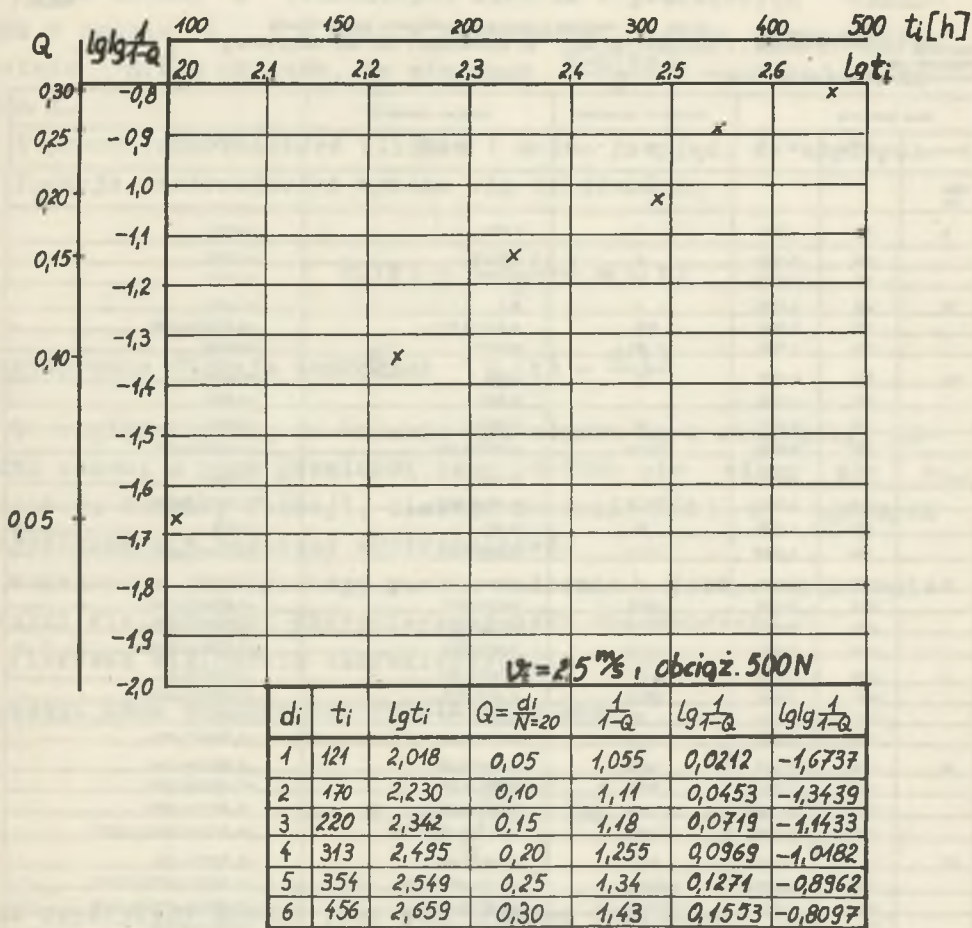 100 150 200 300 400 500 ti[h]
Q lglg 1/1-Q
2,0 2,1 2,2 2,3 2,4 2,5 2,6 lgti
0,30 -0,8
0,25 -0,9
0,20 -1,0
0,15 -1,1
-1,2
-1,3
0,10 -1,4
-1,5
-1,6
0,05 -1,7
-1,8
-1,9
-2,0
v=2,5 m/s, obciąż. 500N
di ti lgti Q=di/N=20 1/1-Q lg 1/1-Q lglg 1/1-Q
1 121 2,018 0,05 1,055 0,0212 -1,6737
2 170 2,230 0,10 1,11 0,0453 -1,3439
3 220 2,342 0,15 1,18 0,0719 -1,1433
4 313 2,495 0,20 1,255 0,0969 -1,0182
5 354 2,549 0,25 1,34 0,1271 -0,8962
6 456 2,659 0,30 1,43 0,1553 -0,8097